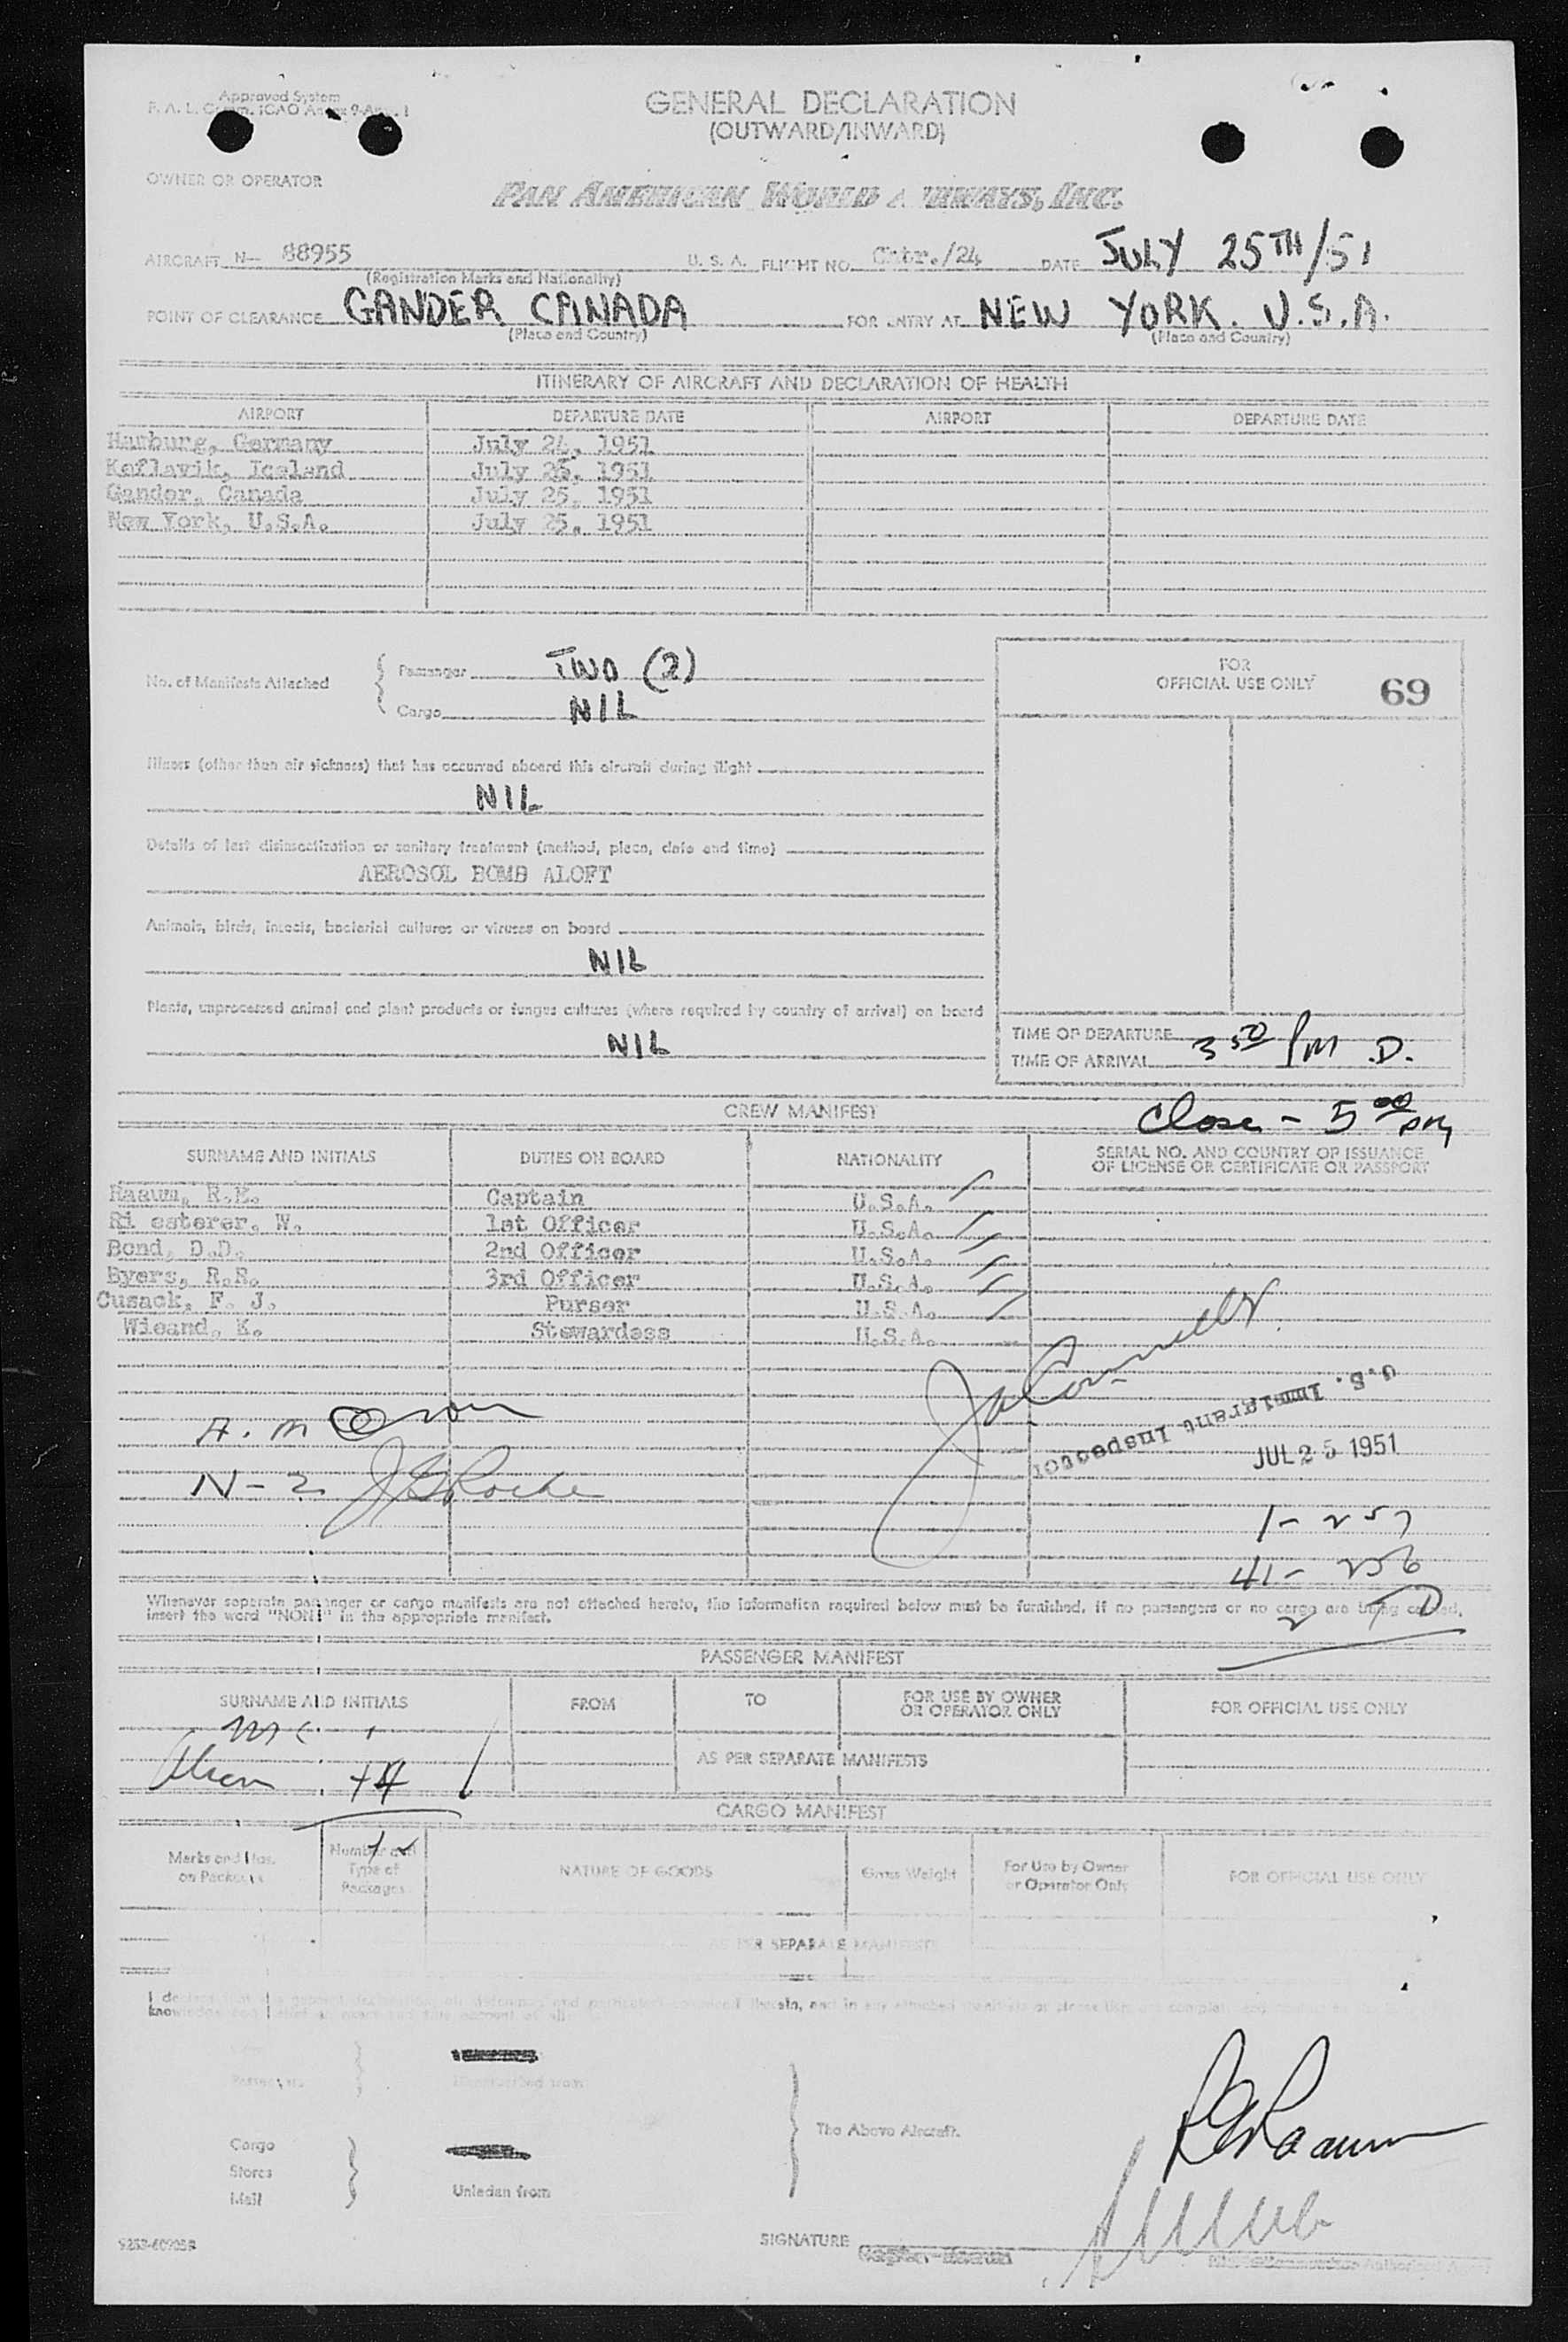 Approved System
F. A. L. Comm. ICAO Annex 9-App. 1
GENERAL DECLARATION
(OUTWARD/INWARD)
OWNER OR OPERATOR
PAN AMERICAN WORLD AIRWAYS, INC.
AIRCRAFT N— 88955 U. S. A. FLIGHT NO. Chtr./24 DATE JULY 25TH/51
(Registration Marks and Nationality)
POINT OF CLEARANCE GANDER CANADA FOR ENTRY AT NEW YORK. U.S.A.
(Place and Country) (Place and Country)
ITINERARY OF AIRCRAFT AND DECLARATION OF HEALTH
AIRPORT DEPARTURE DATE AIRPORT DEPARTURE DATE
Hamburg, Germany July 24, 1951
Keflavik, Iceland July 25, 1951
Gander, Canada July 25, 1951
New York, U.S.A. July 25, 1951
No. of Manifests Attached
Passenger TWO (2)
Cargo NIL
FOR
OFFICIAL USE ONLY 69
Illness (other than air sickness) that has occurred aboard this aircraft during flight
NIL
Details of last disinsectization or sanitary treatment (method, place, date and time)
AEROSOL BOMB ALOFT
Animals, birds, insects, bacterial cultures or viruses on board
NIL
Plants, unprocessed animal and plant products or fungus cultures (where required by country of arrival) on board
NIL
TIME OF DEPARTURE
TIME OF ARRIVAL 3 50 PM D.
CREW MANIFEST
Close - 5 00 pm
SURNAME AND INITIALS DUTIES ON BOARD NATIONALITY SERIAL NO. AND COUNTRY OF ISSUANCE
OF LICENSE OR CERTIFICATE OR PASSPORT
Raaum, R.E. Captain U.S.A.
Ri esterer, W. 1st Officer U.S.A.
Bond, D.D. 2nd Officer U.S.A.
Byers, R.R. 3rd Officer U.S.A.
Cusack, F. J. Purser U.S.A.
Wieand, K. Stewardess U.S.A.
U.S. Immigrant Inspector
JUL 25 1951
A. M
N-2 J Roche
1- 257
41- 256
2 TD
Whenever separate passenger or cargo manifests are not attached hereto, the information required below must be furnished. If no passengers or no cargo are being carried,
insert the word "NONE" in the appropriate manifest.
PASSENGER MANIFEST
SURNAME AND INITIALS FROM TO FOR USE BY OWNER
OR OPERATOR ONLY FOR OFFICIAL USE ONLY
AS PER SEPARATE MANIFESTS
CARGO MANIFEST
Marks and Nos.
on Packages
Number and
Type of
Packages
NATURE OF GOODS
Gross Weight
For Use by Owner
or Operator Only
FOR OFFICIAL USE ONLY
AS PER SEPARATE MANIFESTS
Cargo
Stores
Mail
Unladen from
The Above Aircraft.
R E Raaum
SIGNATURE